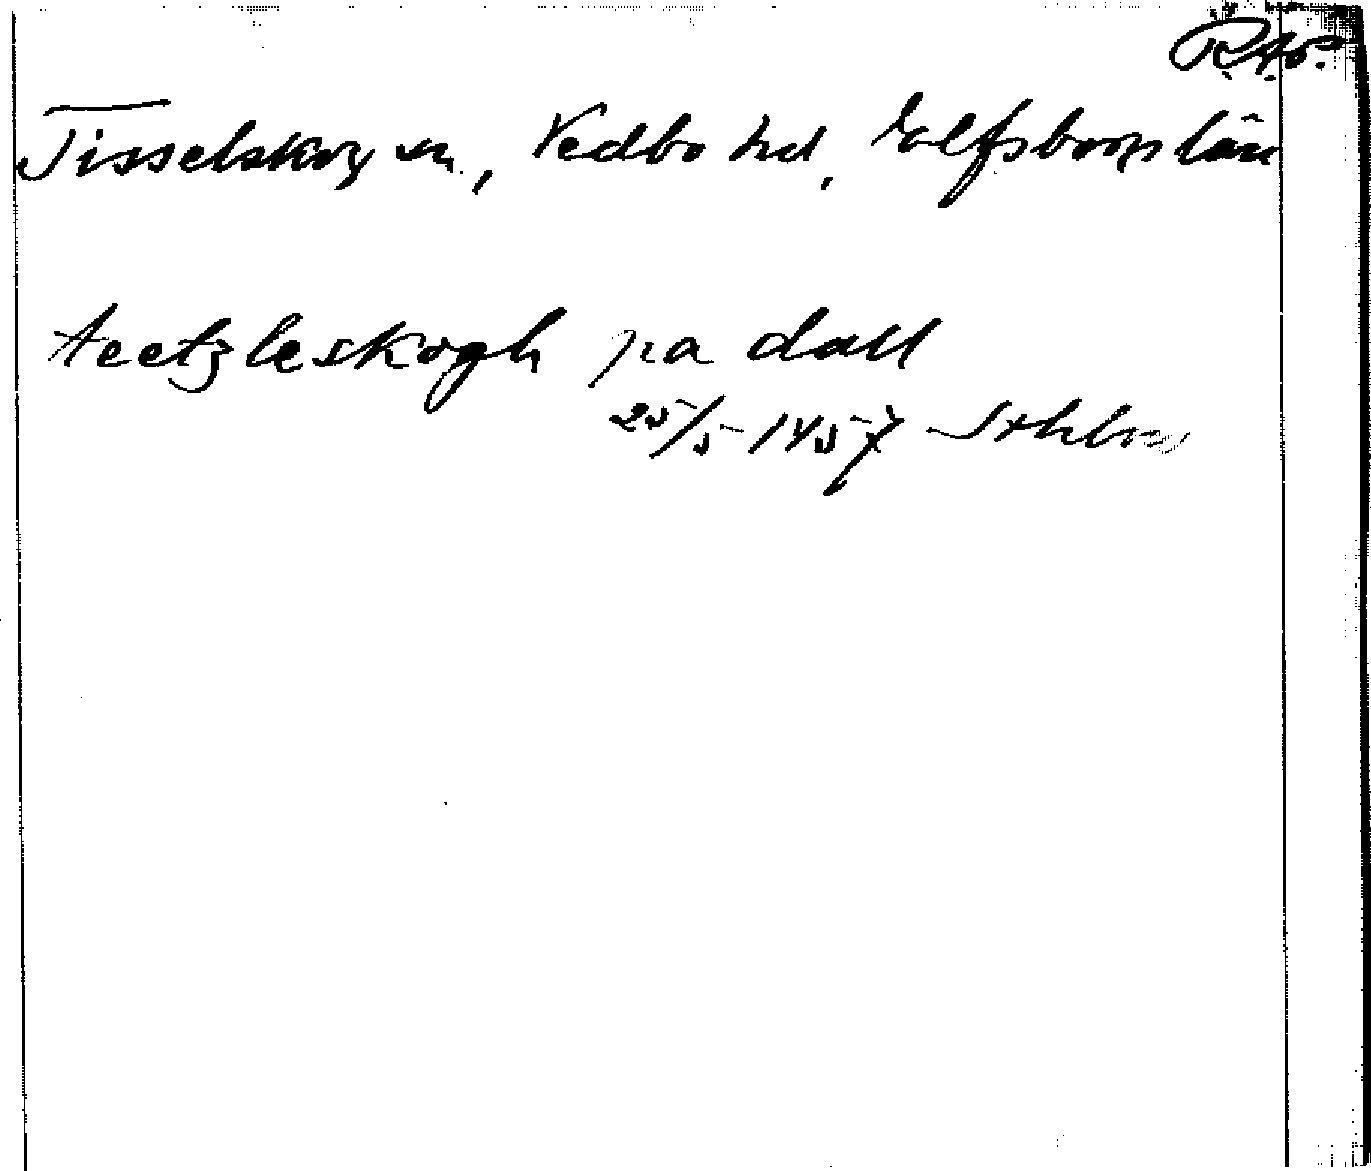 Tisselskog sn, Vedbo hd, Elfsborgs län
teetzleskogh pa dall
25/5 1457 Sthlm